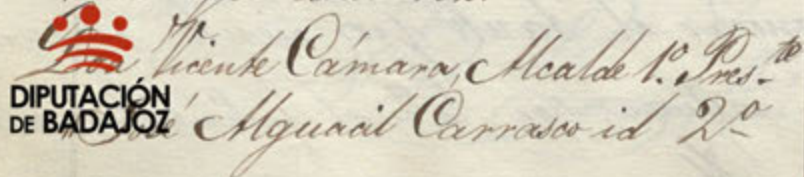 Don Vicente Cámara, Alcalde 1º. Pres.te
DIPUTACIÓN
DE BADAJOZ
" José Alguacil Carrasco id 2º